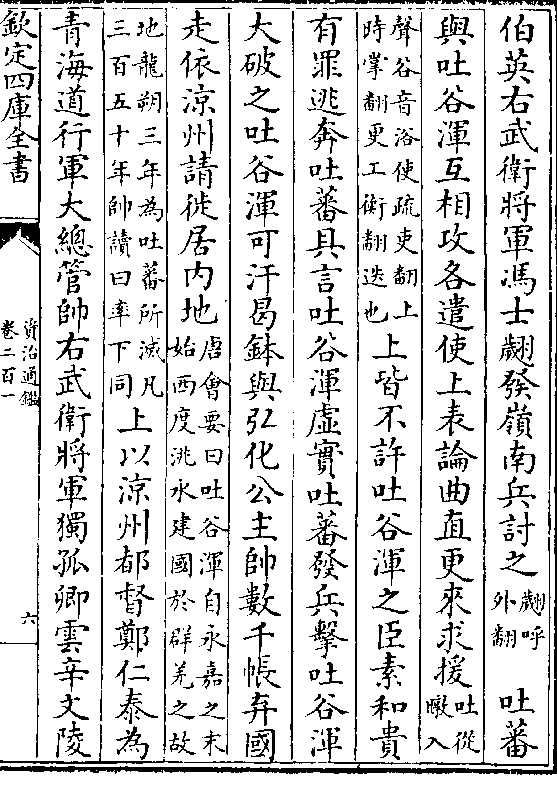 伯英右武衛將軍馮士翽發嶺南兵討之翽呼外翻吐蕃
與吐谷渾互相攻各遣使上表論曲直更來求援吐從暾入
聲谷音浴使疏吏翻上時掌翻更工衡翻迭也上皆不許吐谷渾之臣素和貴
有罪逃奔吐蕃具言吐谷渾虚實吐蕃發兵擊吐谷渾
大破之吐谷渾可汗曷鉢與弘化公主帥數千帳弃國
走依涼州請徙居内地唐會要曰吐谷渾自永嘉之末始西度洮水建國於群羌之故
地龍朔三年為吐蕃所滅凡三百五十年帥讀曰率下同上以涼州都督鄭仁泰為
青海道行軍大總管帥右武衛將軍獨孤卿雲辛文陵
欽定四庫全書
資治通鑑
卷二百一
六